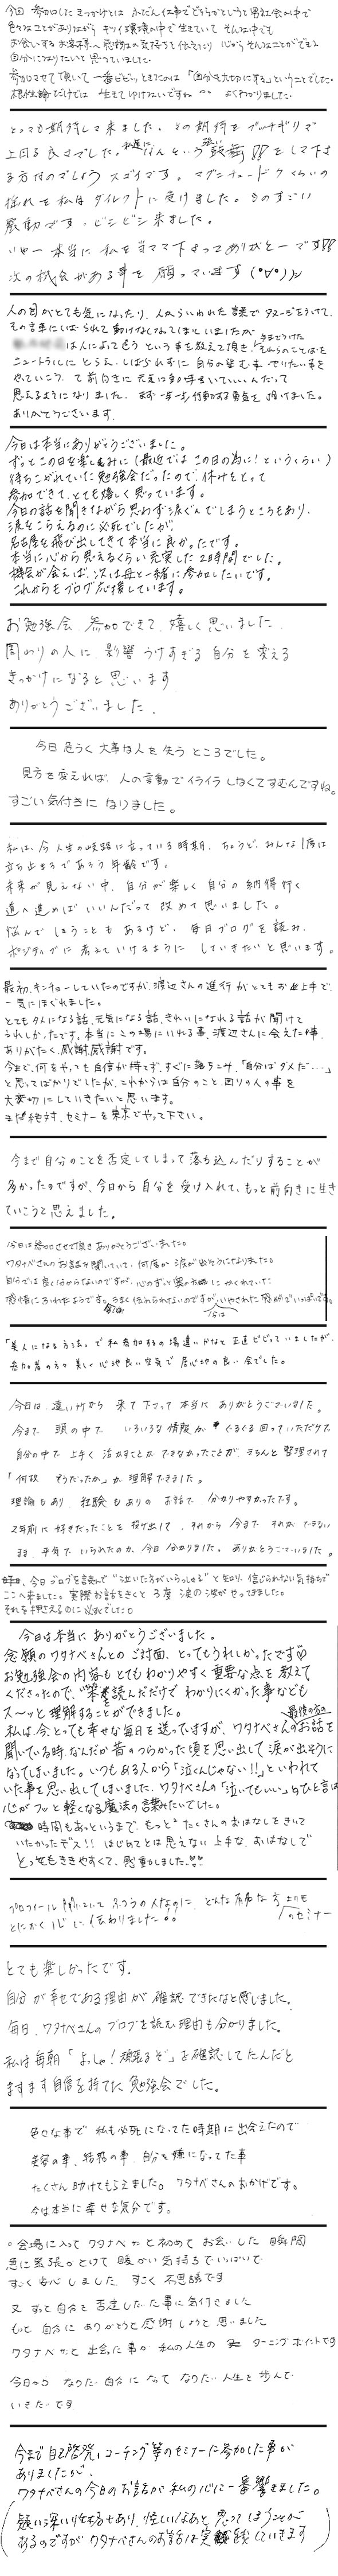 今回 参加したきっかけとは ふだん仕事でどちらかというと男社会の中で
色々なことがありながら キツイ環境の中で生きていて そんな中でも
お会いするお客様へ感謝の気持ちで仕えたり 心からそんなことができる
自分になりたいと思っていました。
参加させて頂いて一番ビビッときたのは「自分を大切にする」ということでした。
根性論だけでは 生きてゆけないですね よくわかりました。
とっても期待して来ました。その期待をブッチギリで
上回る良さでした。なんという鼓舞!!をして下さ
る方なのでしょう スゴイです。マグニチュード9くらいの
揺れを私はダイレクトに受けました。ものすごい
感動です。ビシビシ来ました。
いやー本当に私を当てて下さってありがとーです!!
次の機会がある事を願っています(°∀°)ノ
人の目がとても気になったり、人からいわれた言葉でダメージをうけて、
その言葉にしばられて動けなくなってしまいましたが
は人によって違うという事を教えて頂き、今までうけたそれらのことばを
ニュートラルにとらえ、しばられずに自分の望む事、やりたい事を
やっていこう、て前向きに元気に動き出していいんだって
思えるようになりました。まず一歩行動する勇気を頂けました。
ありがとうございます。
今日は本当にありがとうございました。
ずっとこの日を楽しみに(最近ではこの日の為に!というくらい)
待ちこがれていた勉強会だったので、休みをとって
参加できて、とても嬉しく思っています。
今日の話を聞きながら思わず涙ぐんでしまうところもあり、
涙をこらえるのに必死でしたが、
名古屋を飛び出してきて本当に良かったです。
本当に心から思えるくらい充実した2時間でした。
機会が合えば、次は母と一緒に参加したいです。
これからもブログ応援しています。
お勉強会 参加できて 嬉しく思いました。
周わりの人に 影響うけすぎる自分を変える
きっかけになると思います
ありがとうございました。
今日危うく大事な人を失うところでした。
見方を変えれば、人の言動でイライラしなくてすむんですね。
すごい気付きになりました。
私は、今人生の岐路に立っている時期、ちょうど、みんな1度は
立ち止まるであろう年齢です。
未来が見えない中、自分が楽しく自分の納得行く
道へ進めばいいんだって改めて思いました。
悩んでしまうこともあるけど、毎日ブログを読み、
ポジティブに考えていけるようにしていきたいと思います。
最初、キンチョーしていたのですが、渡辺さんの進行がとてもお上手で、
一気にほぐれました。
とてもタメになる話、元気になる話、きれいになれる話が聞けて
うれしかったです。本当にこの場にいれる事、渡辺さんに会えた事、
ありがたく、感謝感謝です。
今まで、何をやっても自信が持てず、すぐに落ちこみ、「自分はダメだ…」
と思ってばかりでしたが、これからは自分のこと、回りの人の事を
大切にしていきたいと思います。
また絶対、セミナーを東京でやって下さい。
今まで自分のことを否定してしまって落ち込んだりすることが
多かったのですが、今日から自分を受け入れて、もっと前向きに生き
ていこうと思えました。
今日は参加させて頂きありがとうございました。
ワタナベさんのお話を聞いていて、何度か涙が出そうになりました。
自分では良く分からないのですが、心のずっと奥の方にかくれていた
感情にふれたようです。うまく伝えられないのですが、今はいやされた感がいっぱいです。
「美人になる方法」で私参加するの場違いかなと正直ビビっていましたが、
参加者の方の美しく心地良い空気で居心地の良い会でした。
今日は、遠い所から来て下さって本当にありがとうございました。
今まで頭の中で、いろいろな情報がぐるぐる回っていただけで
自分の中で上手く活かすことができなかったことが、きちんと整理されて
「何故そうだったか」が理解できました。
理論もあり、経験もありのお話で、分かりやすかったです。
2年前に好きだったことを投げ出して、それから今までそれができない
まま平気でいられたのか、今日分かりました。ありがとうございました。
今日ブログを読んで"泣いた方がいらっしゃる"と知り、信じられない気持ちで
ここへ来ました。実際お話をきくと3度 涙の波がやってきました。
それを押さえるのに必死でした。
今日は本当にありがとうございました。
念願のワタナベさんとのご対面、とってもうれしかったです♡
お勉強会の内容もとてもわかりやすく重要な点を教えて
くださったので、"本を読んだだけでわかりにくかった事なども
スーッと理解することができました。
私は、今とっても幸せな毎日を送っていますが、ワタナベさんの最後の方のお話を
聞いている時、なんだか昔のつらかった頃を思い出して涙が出そうに
なってしまいました。いつもある人から「泣くんじゃない!!」といわれて
いた事を思い出してしまいました。ワタナベさんの「泣いてもいい」のひと言は
心がフッと軽くなる魔法の言葉みたいでした。
時間もあっというまで、もっとたくさんのおはなしをきいて
いたかったデス!! はじめてとは思えない上手な、おはなしで
とってもききやすくて、感動しました!!
プロフィール聞いていてふつうの人なのに、どんな有名な方よりものセミナー
とにかく心に伝わりました。
とても楽しかったです。
自分が幸せである理由が確認できたなと感じました。
毎日、ワタナベさんのブログを読む理由も分かりました。
私は毎朝「よっしゃ!頑張るぞ」を確認してたんだと
ますます自信を持てた勉強会でした。
色々な事で私も必死になってた時期に出会えたので
美容の事、結婚の事、自分を嫌になってた事
たくさん助けてもらえました。ワタナベさんのおかげです。
今は本当に幸せな気分です。
。会場に入ってワタナベさんと初めてお会いした瞬間
急に緊張がとけて暖かい気持ちでいっぱいで
すごく安心しました すごく不思議です
又ずっと自分を否定した事に気付きました
もっと自分にありがとうと感謝しようと思いました
ワタナベさんと出会えた事が私の人生のターニングポイントです
今日からなりたい自分になってなりたい人生を歩んで
いきたいです
今まで自己啓発、コーチング等のセミナーに参加した事が
ありましたが、
ワタナベさんの今日のお話が私の心に一番響きました。
(疑い深い性格もあり、怪しいなあと思ってしまうことが
あるのですがワタナベさんのお話は実践していきます)